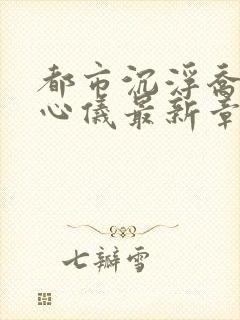 都市沉浮乔
心儀最新章
七瓣雪